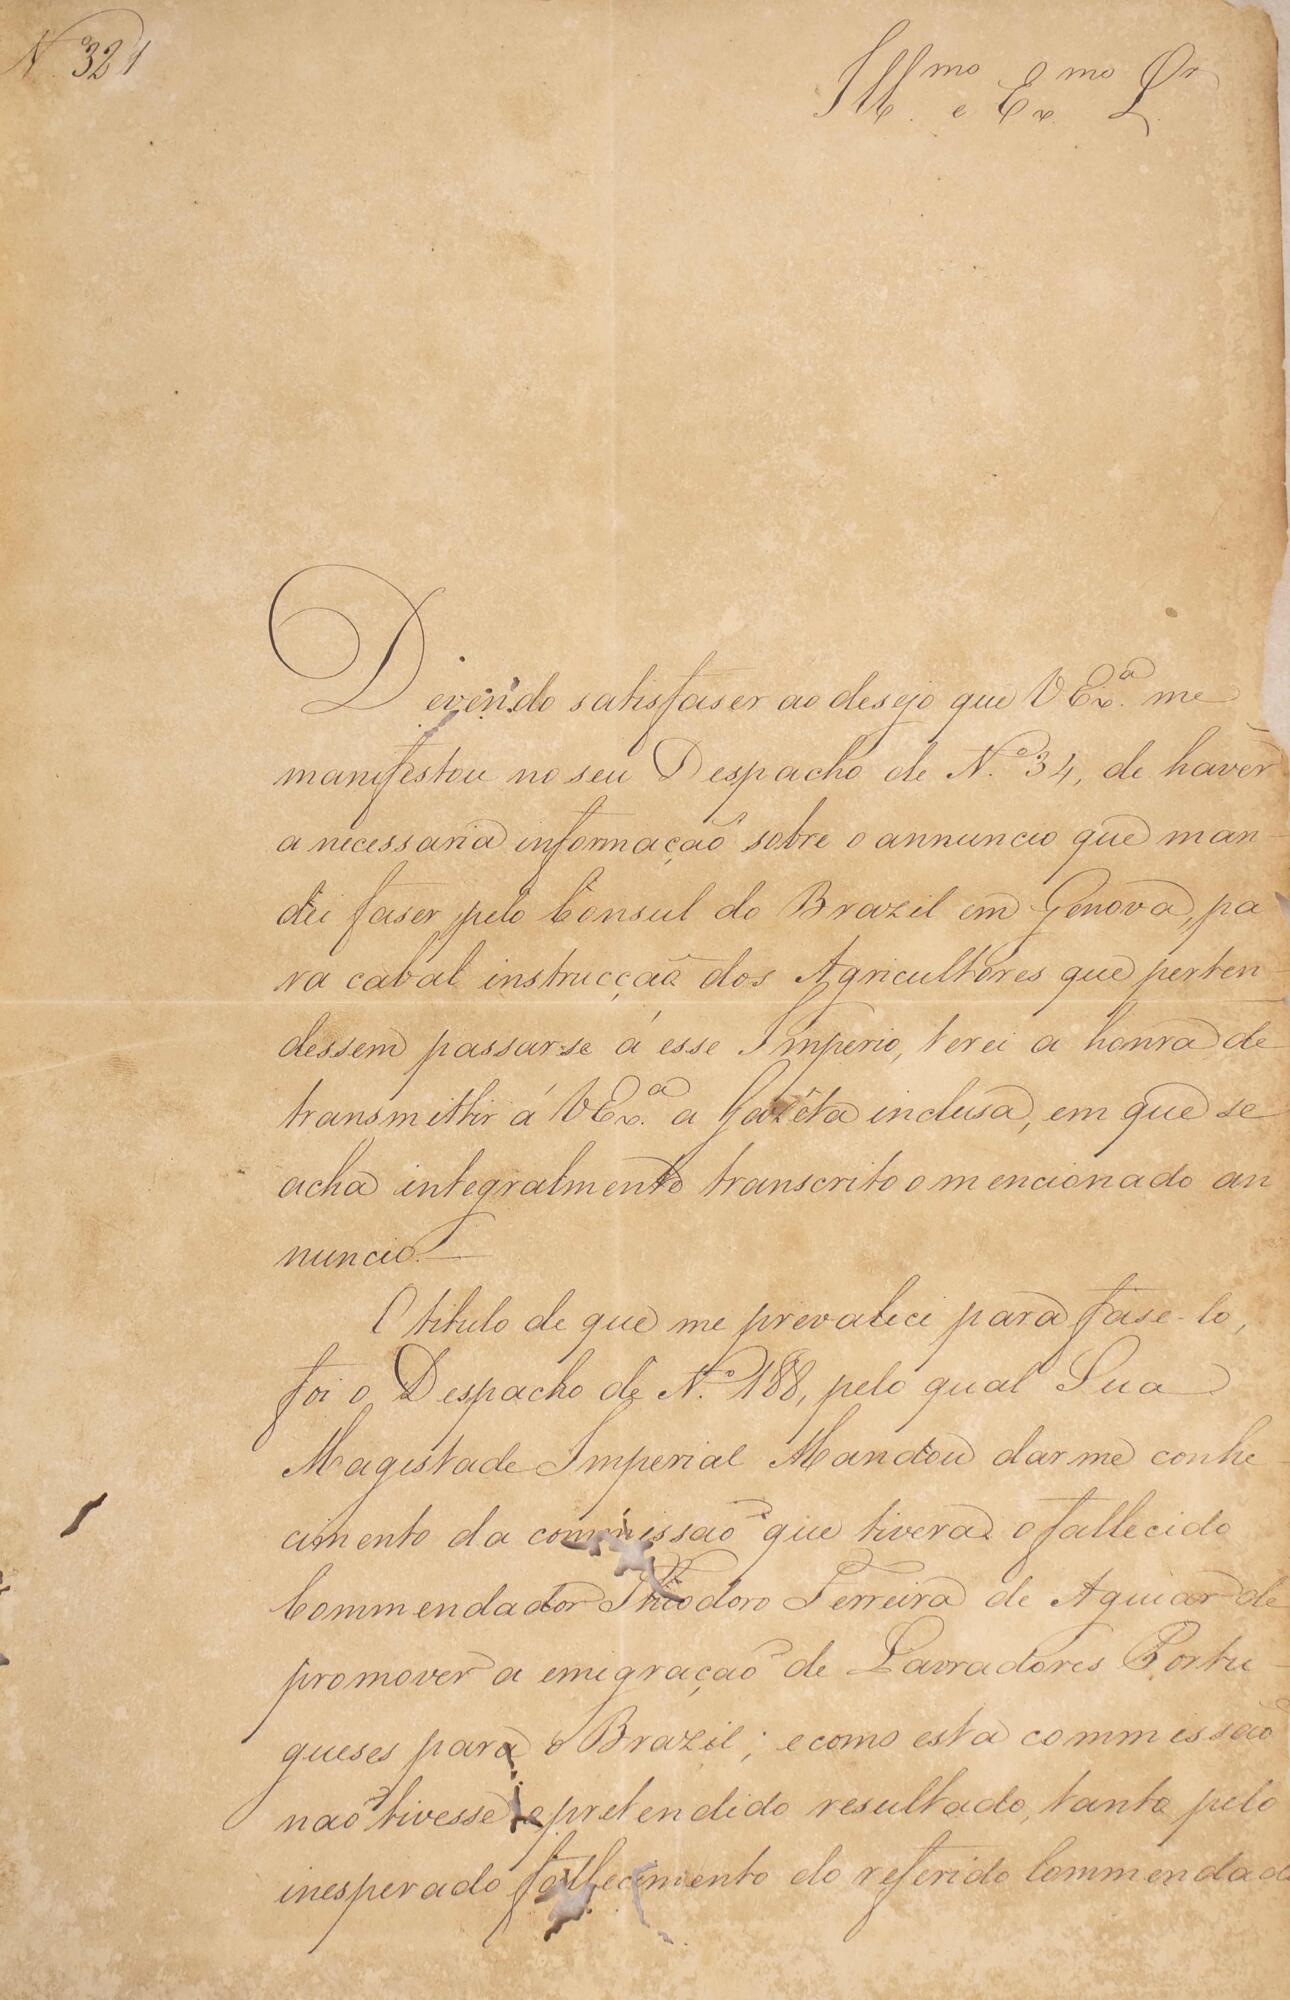 N.º 321
Ill.mo e Ex.mo Sr
Devendo satisfaser ao desejo que V Ex.a me
manifestou no seu Despacho de N.º 34, de haver
a necessaria informação sobre o annuncio que man-
dei faser pelo Consul do Brazil em Genova, pa
ra cabal instrucção dos Agricultores que perten-
dessem passar-se á esse Imperio, terei a honra de
transmittir á V Ex.a a Gazêta inclusa, em que se
acha integralmente transcrito o mencionado an
nuncio.
O titulo de que me prevaleci para fase-lo,
foi o Despacho de N.º 188, pelo qual Sua
Magestade Imperial Mandou darme conhe-
cimento da commissão que tivera o fallecido
Commendador Theodoro Ferreira de Aguiar de
promover a emigração de Lavradores Portu-
gueses para o Brazil; e como esta commissão
não tivesse o pretendido resultado, tanto pelo
inesperado fallecimento do referido Commendad